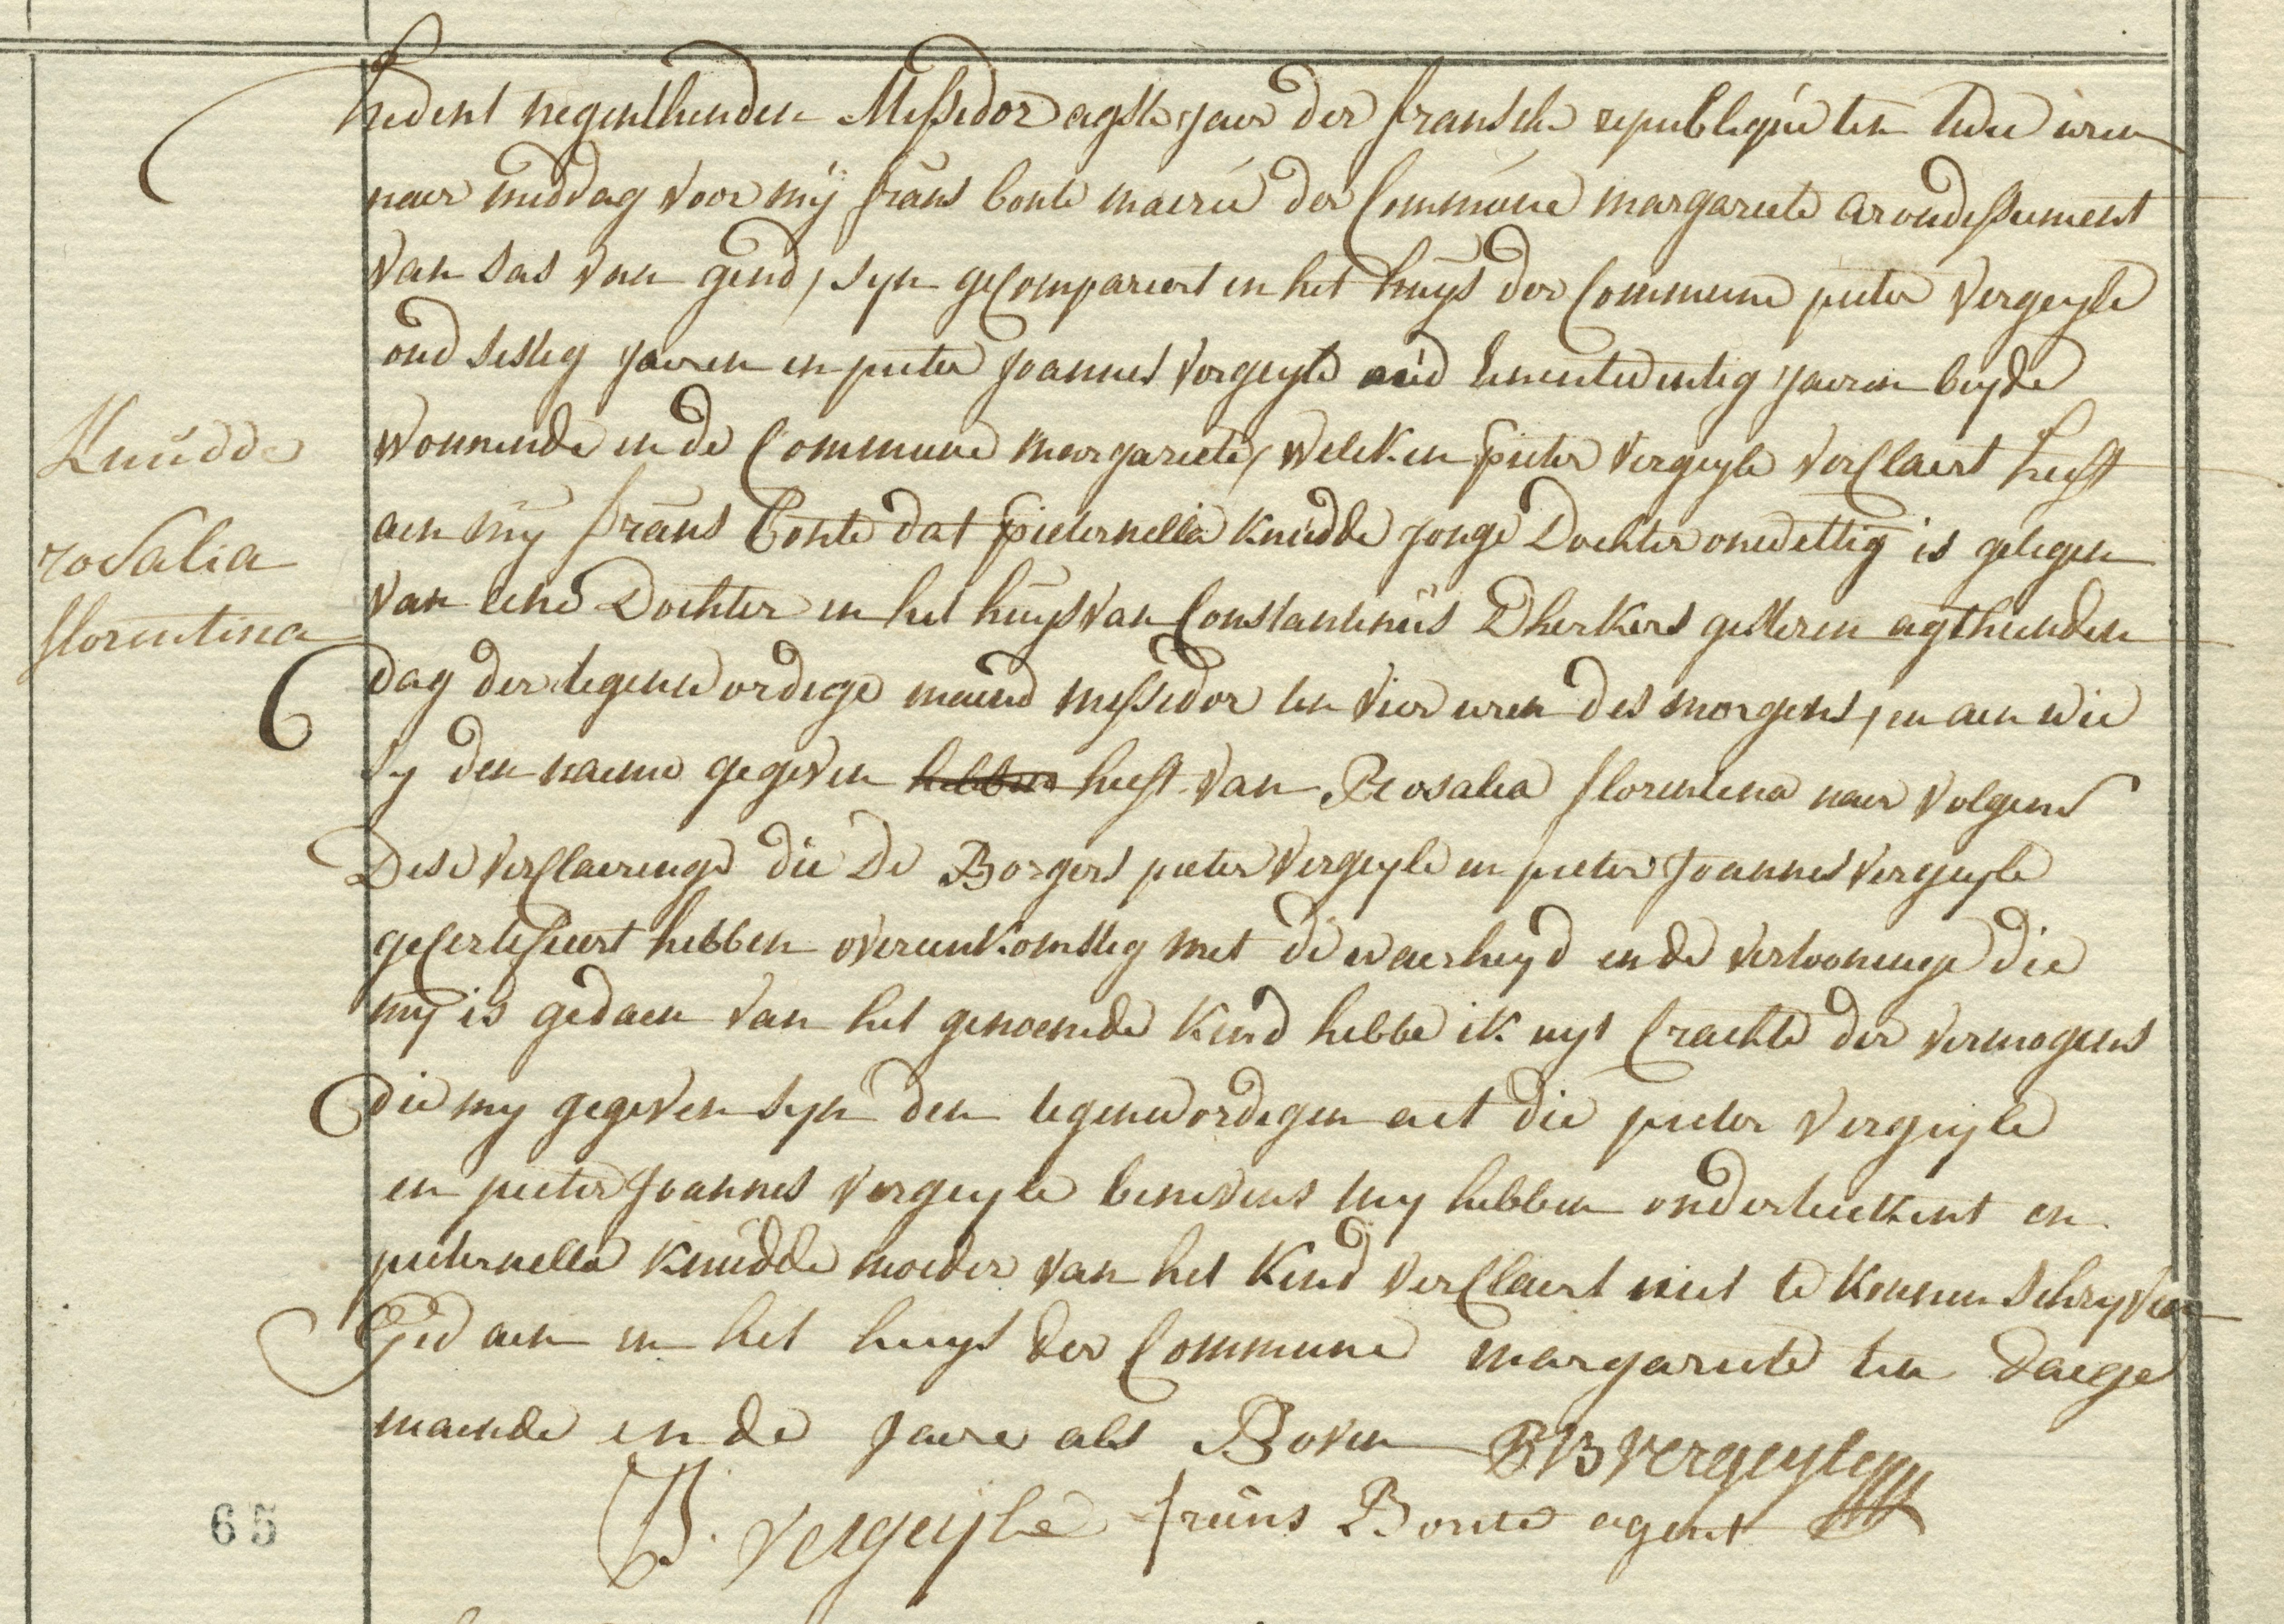 hedent negenthienden Messedor agste jaer der fransche republique ten twee uren
naer middag voor mÿ frans bonte mairie der Commune margariete arondessement
van sas van gend, syn geCompareert in het huÿs der Commune pieter vergeyle
oud sestig jaeren en pieter joannes vergeyle oud eenentwentig jaeren beyde
wonnende in de Commune margariete, welcken pieter vergeyle verClaert heeft
aen mÿ frans Bonte dat pieternella knudde jonge Dochter onwettig is gelegen
van eene Dochter in het huÿs van Constantinus Dherkers gisteren agthienden
dag der tegenwordige maend messedor ten vier uren des morgens, en aen wie
sy den naeme gegeven hebben heeft van Rosalia florentina naer volgens
Dese verClaeringe die De Borgers pieter vergeyle en pieter joannes vergeyle
geCertifieert hebben overeenkomstig met de waerheyd en de vertooninge die
mÿ is gedaen van het genoemde kind hebbe ik uyt Crachte der vermogens
die my gegeven syn den tegenwordigen act die pieter vergeyle
en pieter joannes vergeyle benevens my hebben onderteekent en
pieternella knudde moeder van het kind verClaert niet te konnen schryven
Gedaen in het huys der Commune margariete ten daege
maende en de jaere als Boven
Knudde
rosalia
florentina
P. vergeÿle frans Bonte agent
vergeyle
65